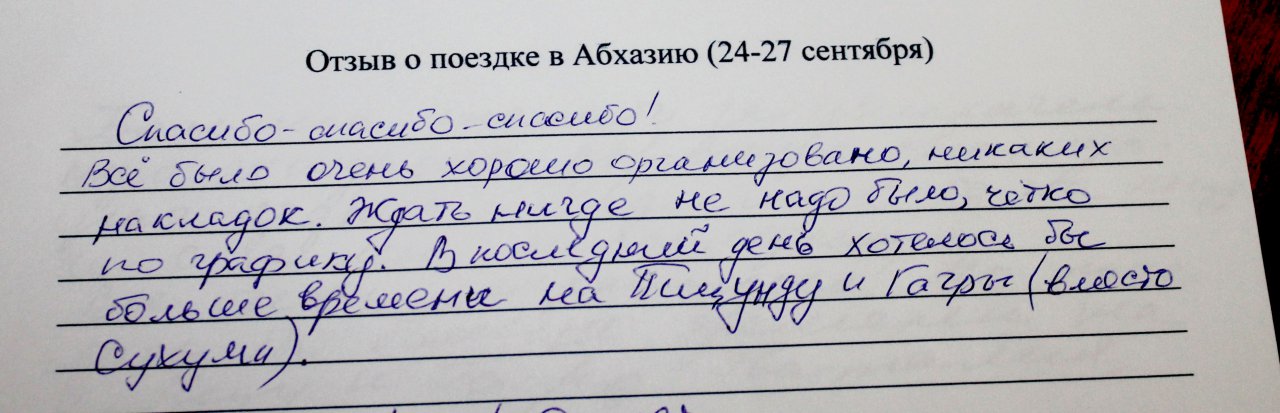 Отзыв о поездке в Абхазию (24-27 сентября)
Спасибо-спасибо-спасибо!
Всё было очень хорошо организовано, никаких
накладок. Ждать нигде не надо было, чётко
по графику. В последний день хотелось бы
больше времени на Пицунду и Гагры (вместо
Сухуми).